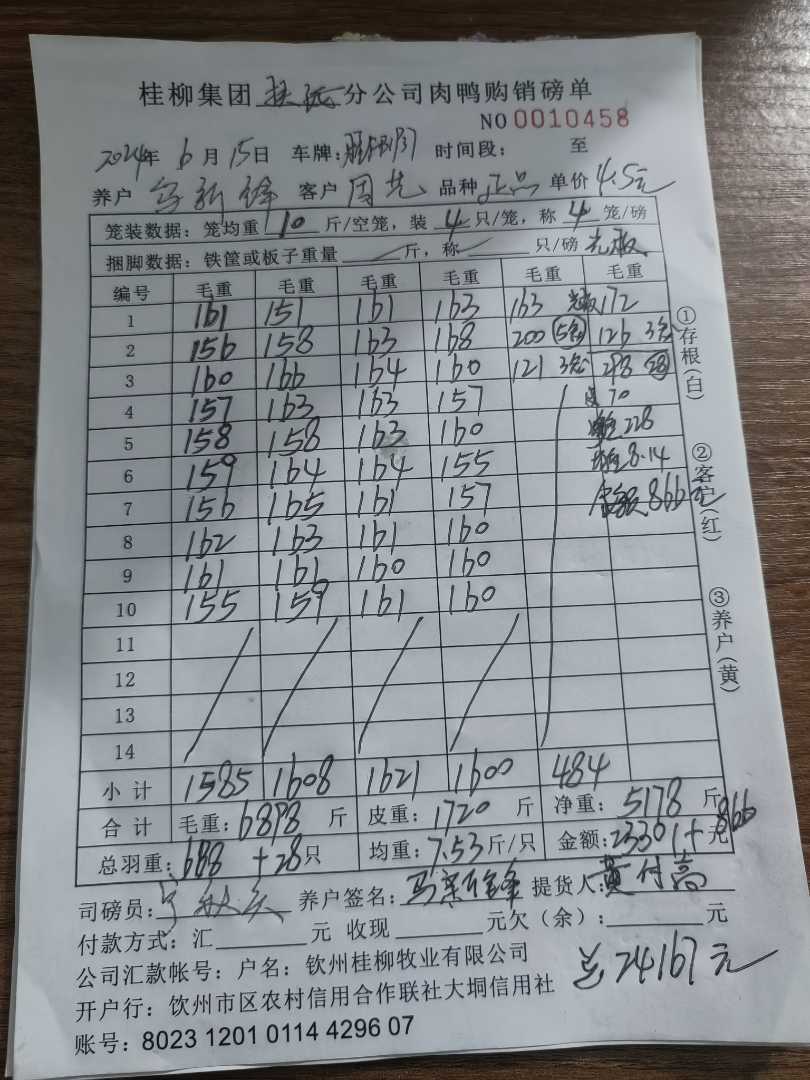 桂柳集团 分公司肉鸭购销磅单
NO 0010458
2024年 6 月 15日 车牌: 时间段: 至
养户 客户 周 品种 正品 单价 4.5元
笼装数据: 笼均重 10 斤/空笼, 装 4 只/笼, 称 4 笼/磅
捆脚数据: 铁筐或板子重量 斤, 称 只/磅
编号 毛重 毛重 毛重 毛重 毛重 毛重
1 161 151 161 163 163 172
2 156 158 163 168 200 126
3 160 166 164 160 121 298
4 157 163 163 157 70
5 158 158 163 160 228
6 159 164 164 155 8.14
7 156 165 161 157 金额 866元
8 162 163 161 160
9 161 161 160 160
10 155 159 161 160
11
12
13
14
小计 1585 1608 1621 1600 484
合计 毛重: 6898 斤 皮重: 1720 斤 净重: 5178 斤
总羽重: 688 + 28只 均重: 7.53斤/只 金额: 23301+866元
司磅员: 养户签名: 提货人: 黄付高
付款方式: 汇 元 收现 元欠(余): 元
公司汇款帐号: 户名: 钦州桂柳牧业有限公司
总24167元
开户行: 钦州市区农村信用合作联社大垌信用社
账号: 8023 1201 0114 4296 07
①存根(白)
②客户(红)
③养户(黄)